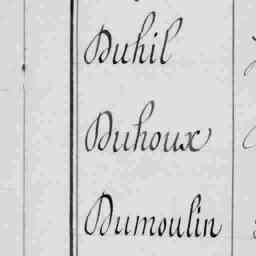 Duhil
Duhoux
Dumoulin